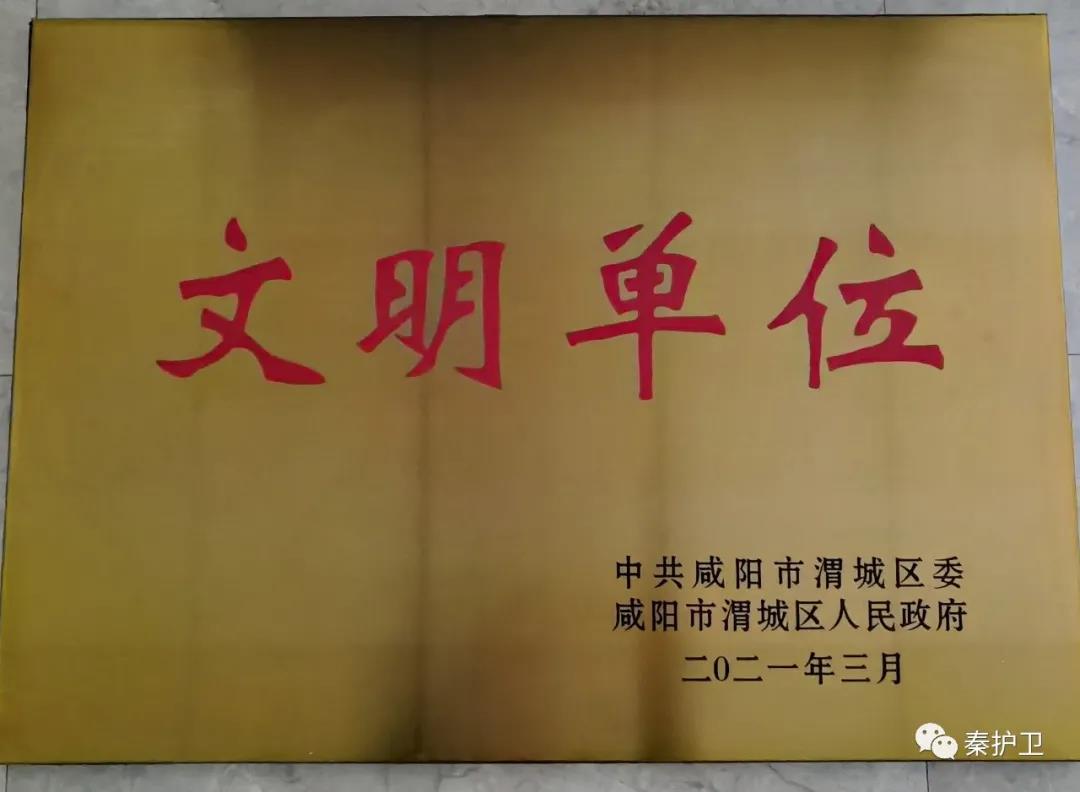 文明单位
中共咸阳市渭城区委
咸阳市渭城区人民政府
二〇二一年三月
秦护卫